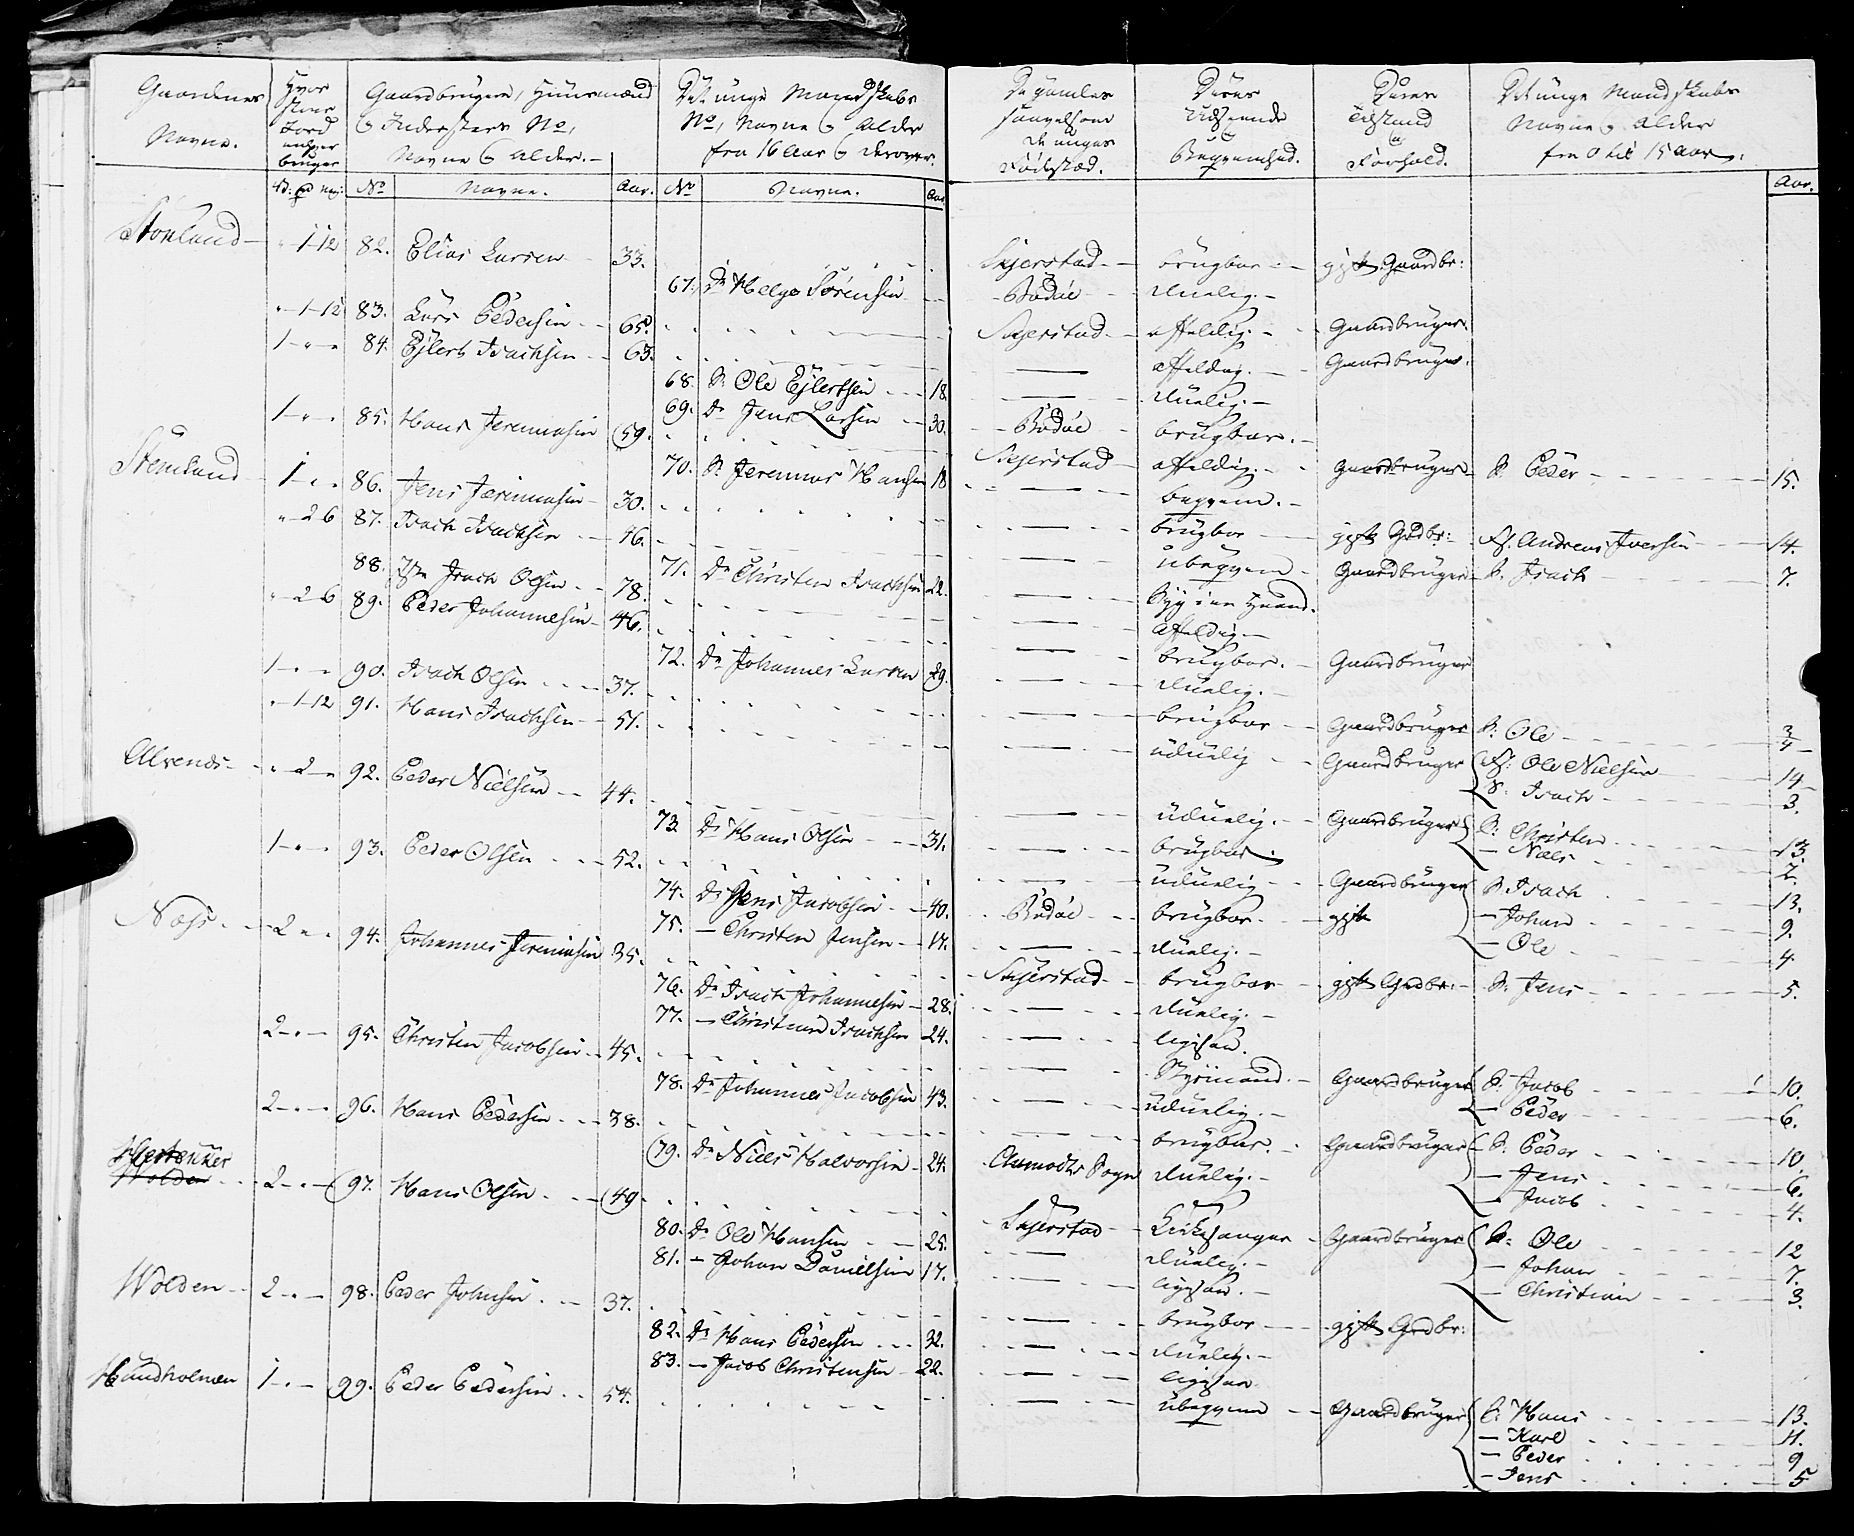 Gaardenes Navne.
Hvor stor Jord enhver bruger
Gaardbrugere, Huusmænd & Indersters No, Navne & Alder.
Det unge Mandskabs No, Navne & Alder fra 16 Aar & derover.
De gamles saavelsom de unges Fødested.
Deres Udseende & Beqvemhed.
Deres Tilstand & Forhold.
Det unge Mandskabs Navne & Alder fra 0 til 15 Aar.
No Navne. Aar. No Navne. Aar. Aar.
1-12 82. Elias Larsen 33. Skjerstad brugbar gift Gaardbr:
67. Dr Helge Sörensen Bodöe duelig.
1-12 83. Lars Pedersen 65. Skjerstad affeldig. Gaardbruger.
1 84. Ejlert Isachsen 63. affeldig. Gaardbruger.
68. S. Ole Ejlertsen 18. duelig.
69. Dr Jens Larsen 30. Bodöe brugbar.
1 85. Hans Jeremiasen 59. Skjerstad affeldig. Gaardbruger S. Peder 15.
70. S. Jeremias Hansen 18 beqvem.
1 86. Jens Jeremiasen 30. brugbar gift Grdbr: Andreas Iversen 14.
2-6 87. Isach Isachsen 46. ubeqvem Gaardbruger S. Isach 7.
71. Dr Christen Isachsen 22.
88. Isach Olsen 78. affeldig.
2-6 89. Peder Johannesen 46. brugbar. Gaardbruger
72. Dr Johannes Larsen 29. duelig.
1 90. Isach Olsen 37. brugbar Gaardbruger S: Ole
1-12 91. Hans Isachsen 51. uduelig Gaardbruger Ole Nielsen 14
S. Isach 3.
Alvenes 2 92. Peder Nielsen 44. uduelig. Gaardbruger S: Christen 13.
Niels
73. Dr Hans Olsen 31. brugbar.
1 93. Peder Olsen 52. uduelig Gaardbruger S. Isach 13.
74. Dr Jens Jacobsen 40. Bodöe brugbar gift Johan 9.
75. Christen Jensen 17. duelig. Ole 4.
Næss 2 94. Johannes Jeremiasen 35. Skjerstad brugbar gift Grdbr: S. Jens 5.
76. Dr Isach Johannesen 28. duelig.
77. Isachsen 24. ligesaa.
2 95. Christen Jacobsen 45. Styrmand. Gaardbruger S. Jacob 10.
Peder 6.
78. Dr Johannes Jacobsen 43. uduelig.
2 96. Hans Pedersen 38. brugbar. Gaardbruger S. Peder 10.
Jens 6.
Jacob 4.
79. Dr Niels Halvorsen 24. Sogn duelig.
Wolden 2 97. Hans Olsen 49. Skjerstad Kirkesanger Gaardbruger S. Ole 12
Johan 7.
Christian 3.
80. Dr Ole Hansen 25. duelig.
81. Johan Danielsen 17. ligesaa.
Wolden 2 98. Peder Johnsen 37. brugbar gift Grdbr:
82. Dr Hans Pedersen 32. duelig.
83. Jacob Christensen 22. ligesaa
Hundholmen 1 99. Peder Pedersen 54. ubeqvem Gaardbruger S: Hans 13.
Karl 11.
Peder 9
Jens 5